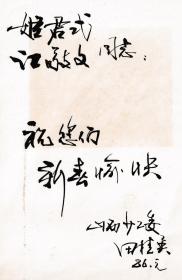 姬君式
江敬文 同志：
祝您们
新春愉快
山西少工委
田桂英
86.元